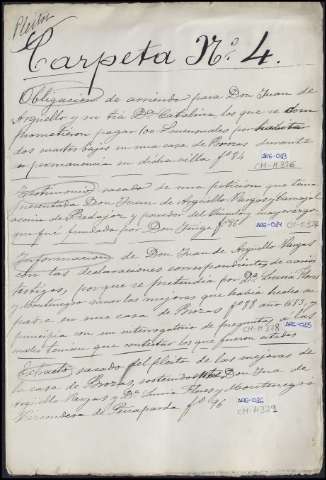 Pleitos
Carpeta Nº 4.
Obligacion de arriendo para Don Juan de
Arguello y su tia Dª Catalina, los que se com
prometieron pagar los
dos cuartos bajos en una casa de Brozas durante
su permanencia en dicha villa fº 84
ARG-023
CH-H 326
Testimonio sacado de una peticion que tenia
presentada Don Juan de Arguello Vargas y Carvajal
vecino de Badajoz y poseedor del vinculo y mayorazgo
que fué fundado por Don Jorge fº 86
ARG-024
CH-H 327
Informacion de Don Juan de Arguello Vargas
con las declaraciones correspondientes de varios
testigos, porque se pretendia por Dª Luisa Flores
y Montenegro sacar las mejoras que habia hecho su
padre en una casa de Brozas fº 88 año 683, y
principia con un interrogatorio de preguntas a las
cuales tenian que contestar los que fueron citados
CH-H 328
ARG-025
Estracto sacado del pleito de las mejoras de
la casa de Brozas, sostenidas Don Juan de
Arguello Vargas, y Dª Luisa Flores y Montenegro
Vizcondesa de Peñaparda fº 96
ARG-026
CH-H 329